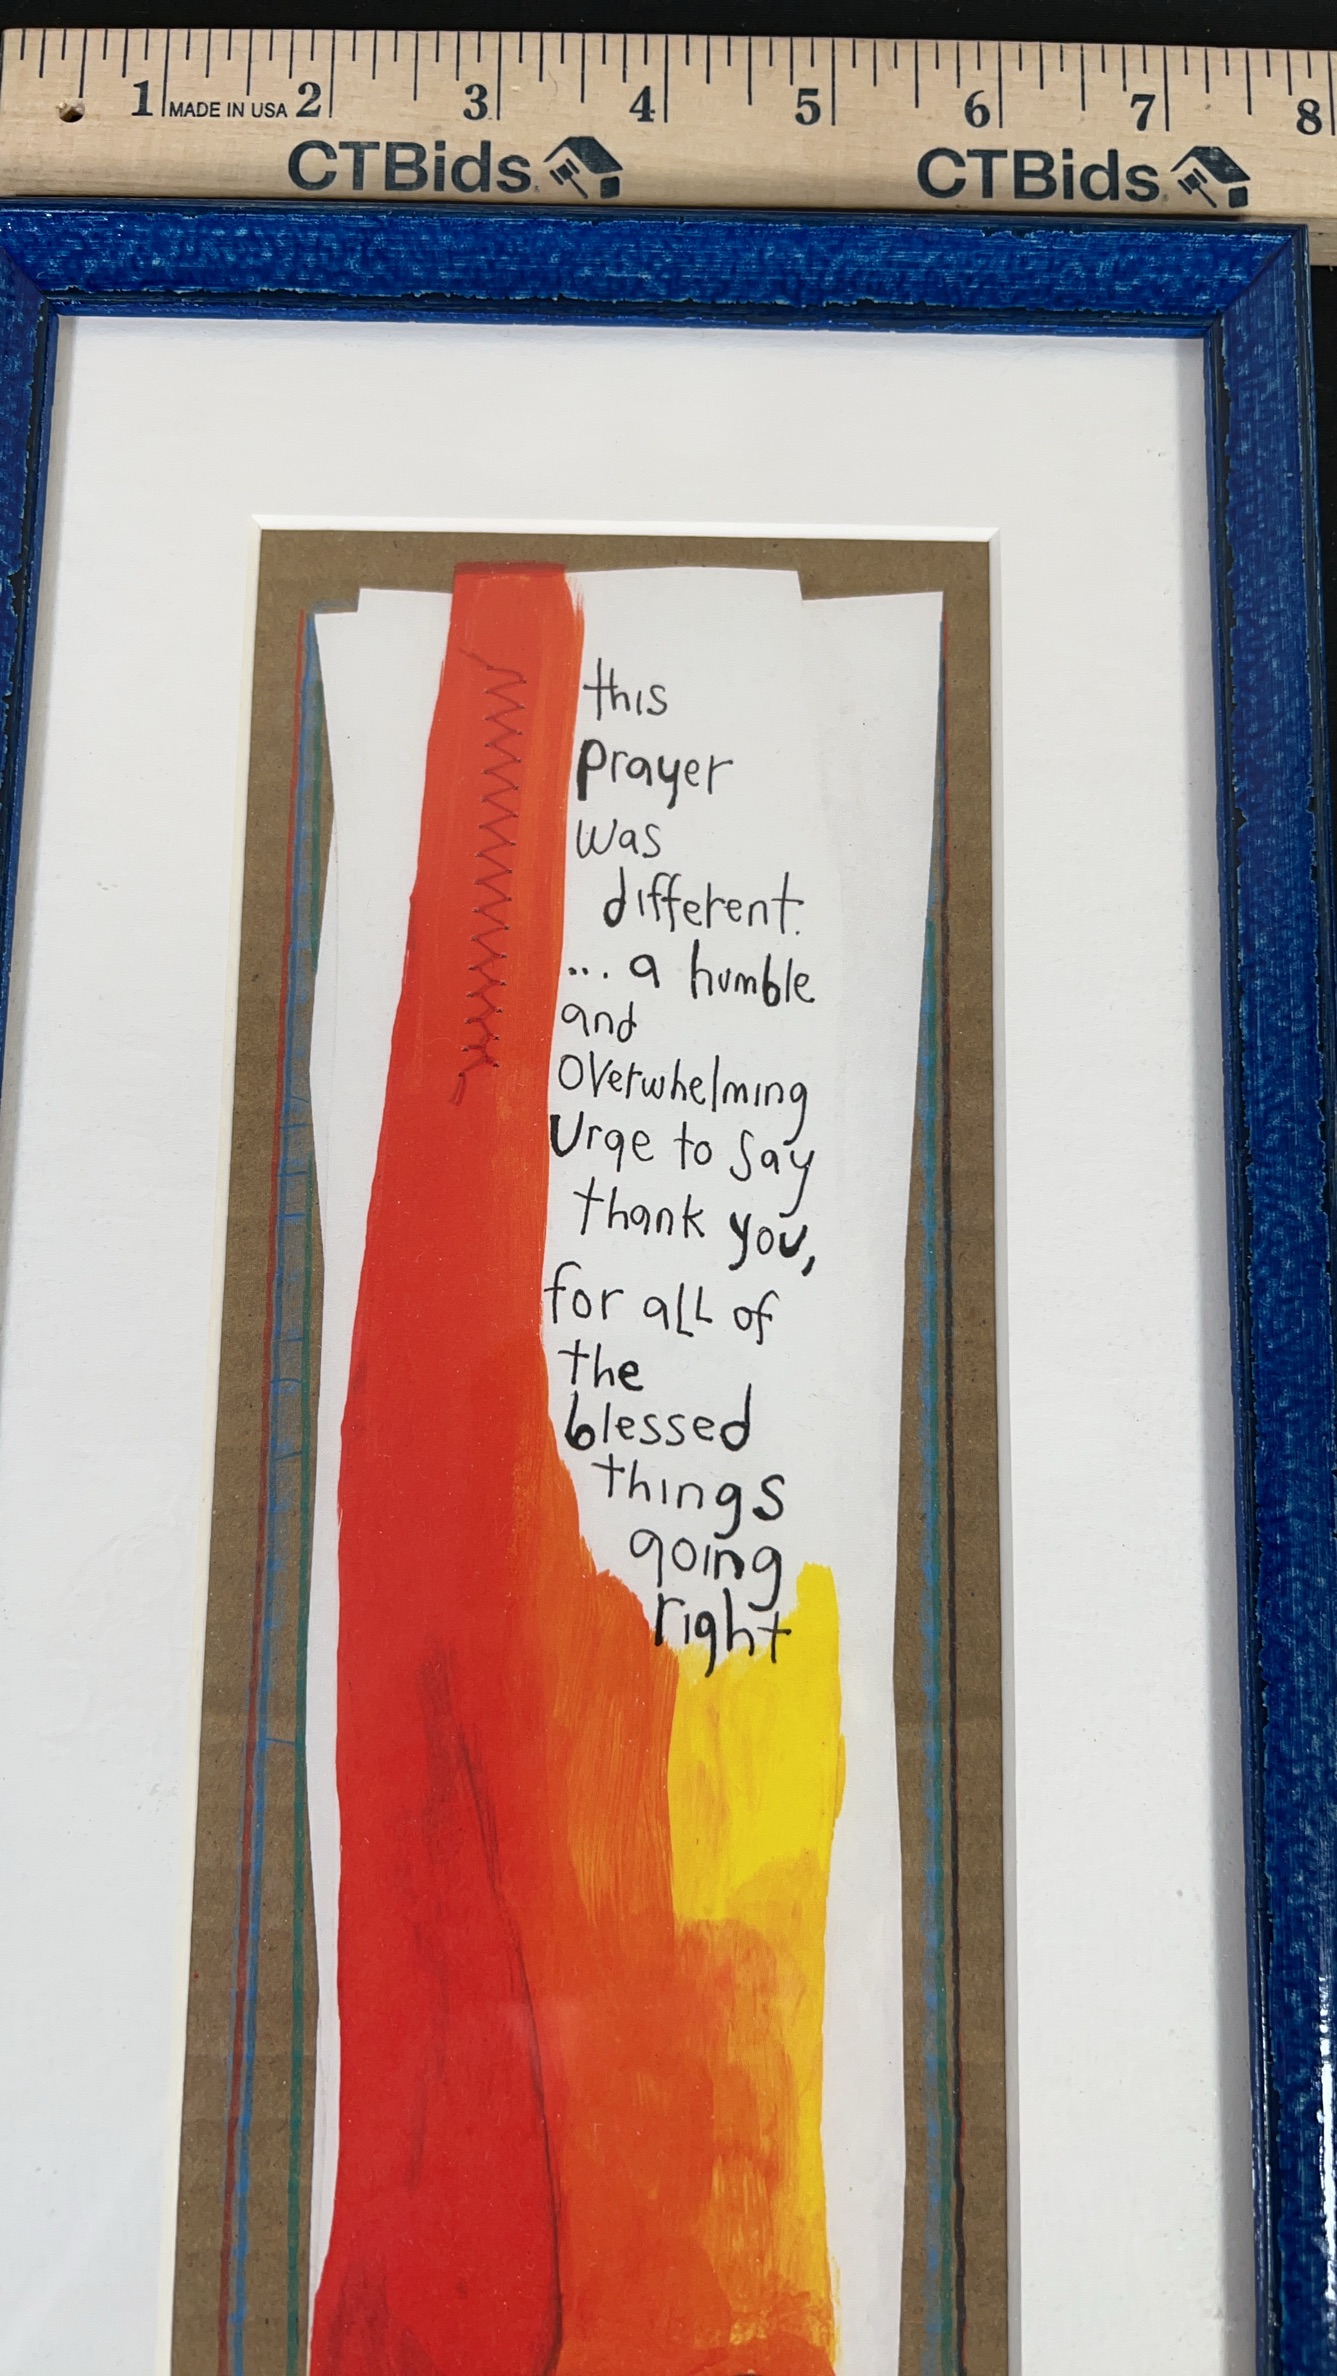 1 MADE IN USA 2 3 4 5 6 7 8
CTBids. CTBids.
this
prayer
was
different.
... a humble
and
overwhelming
urge to say
thank you,
for all of
the
blessed
things
going
right